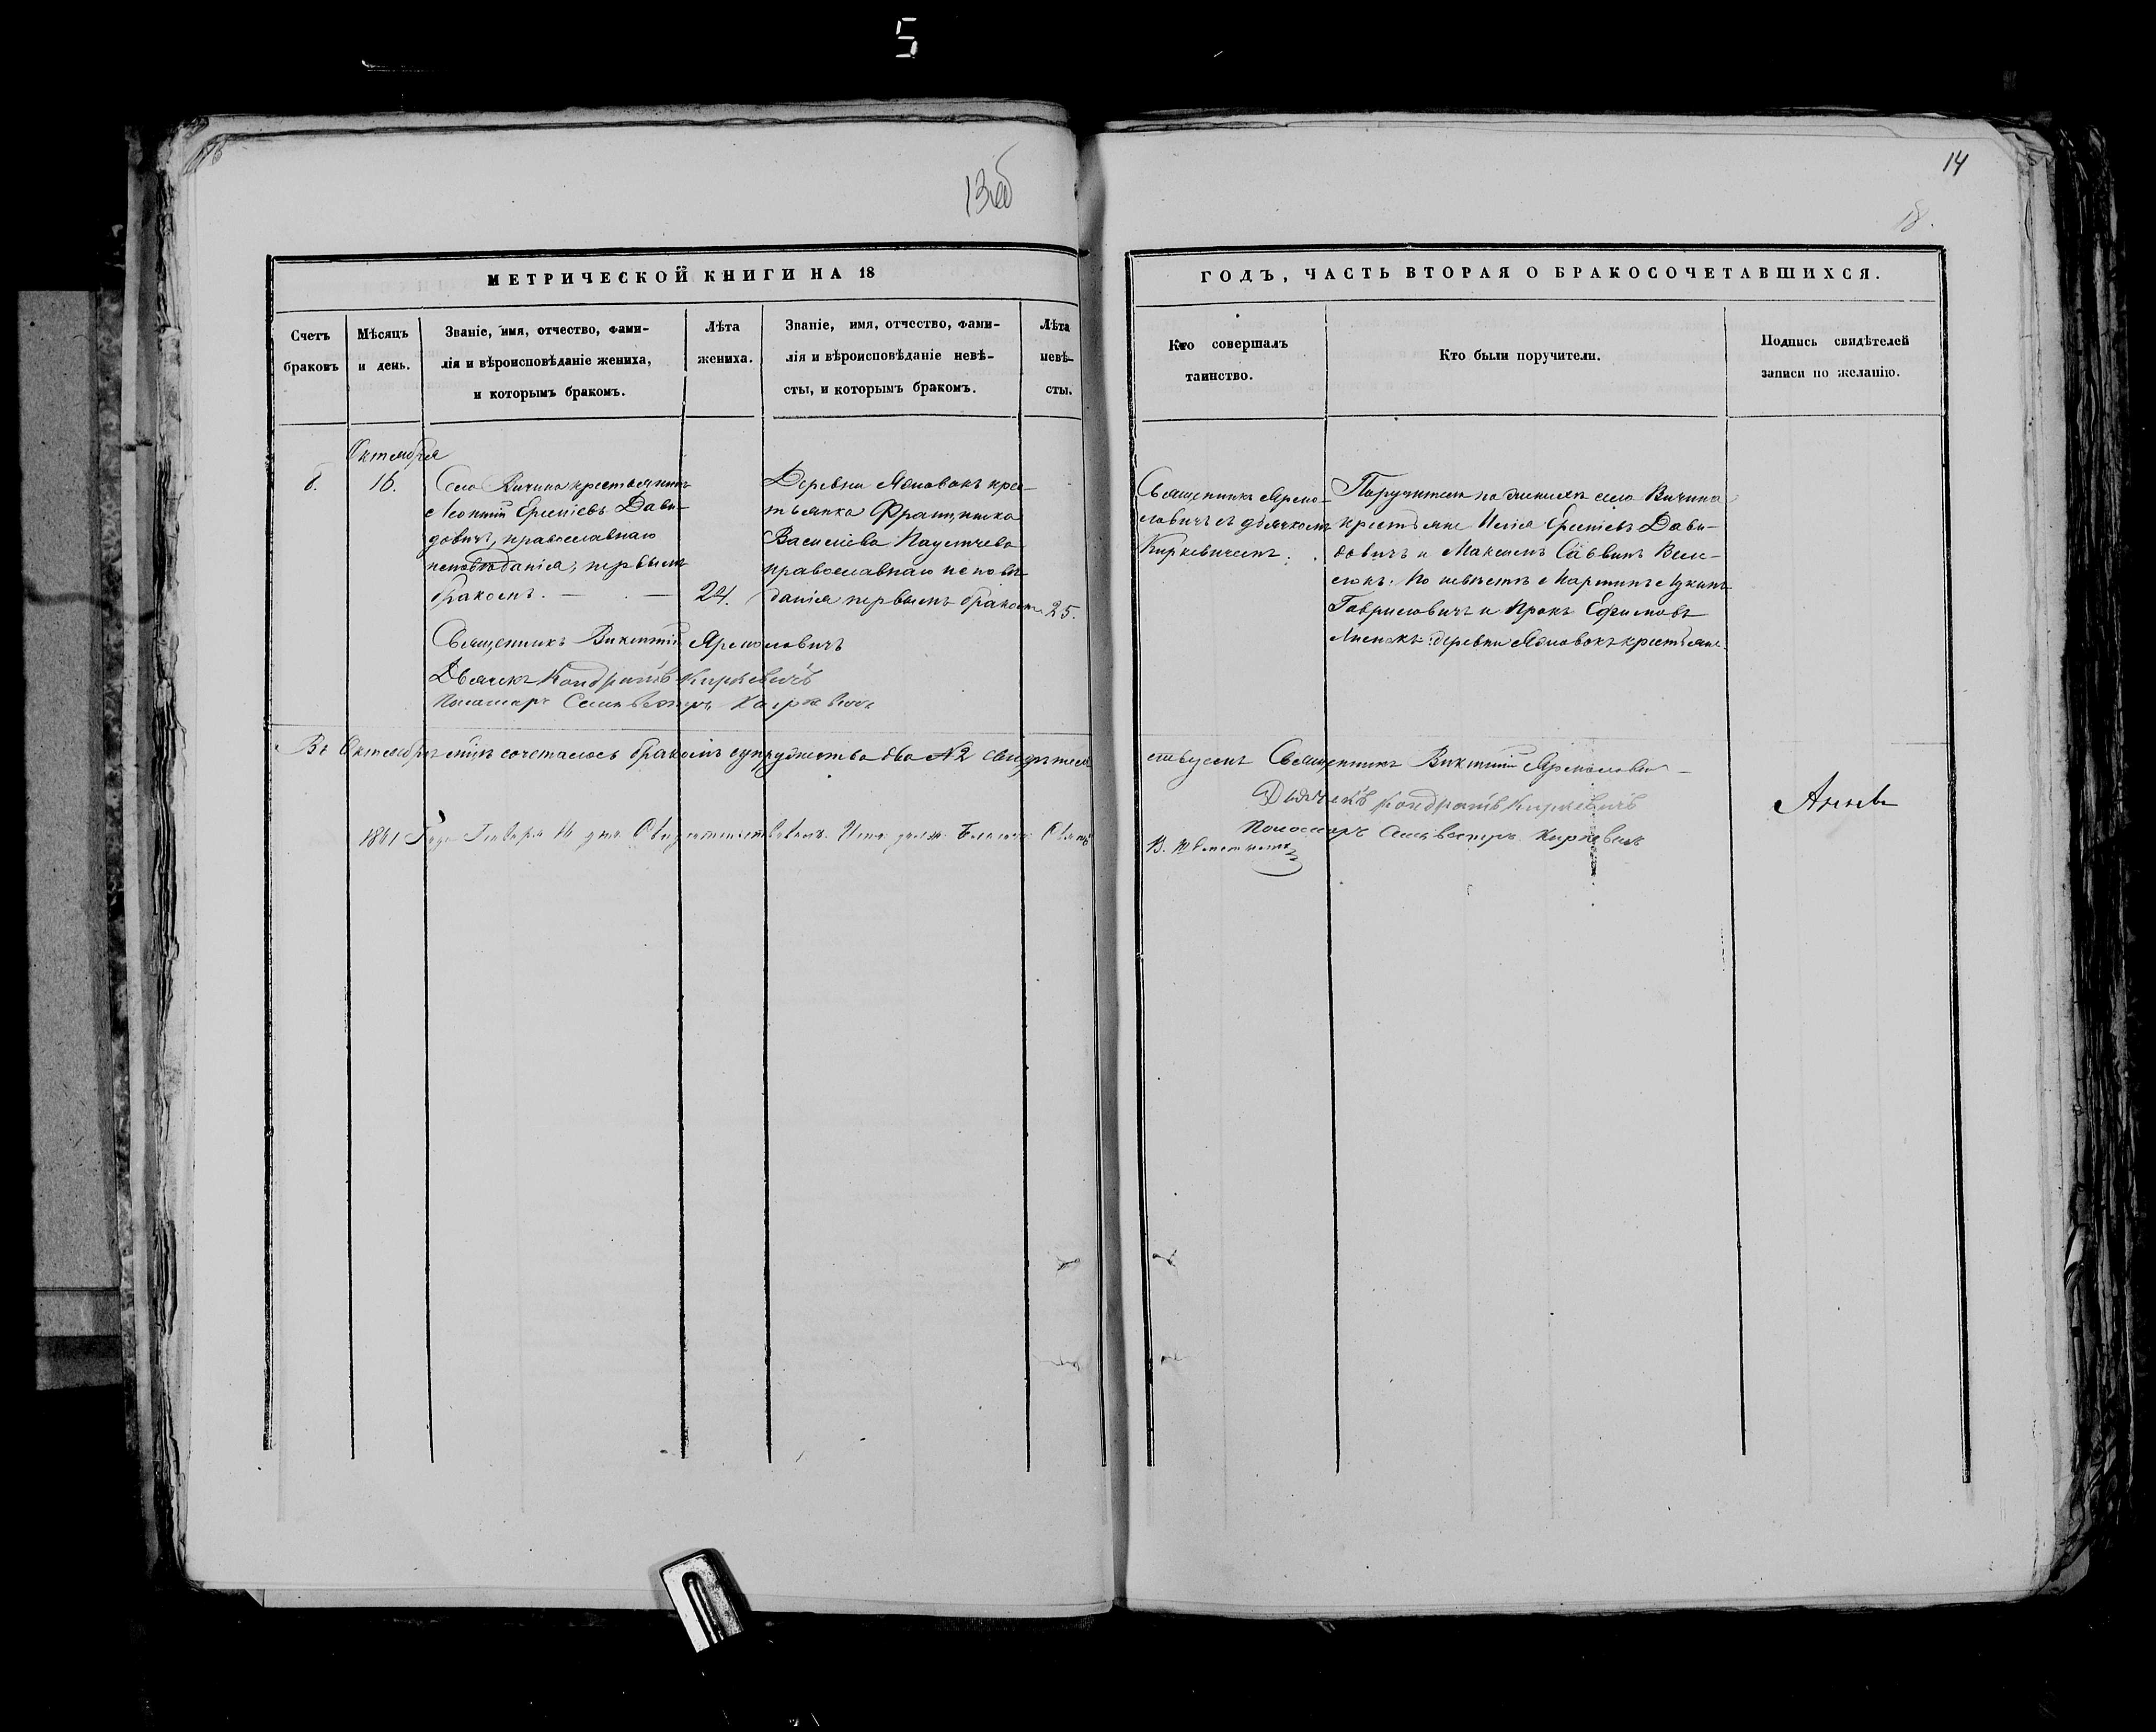 5
13об
14
18.
МЕТРИЧЕСКОЙ КНИГИ НА 18
Счетъ браковъ
Мѣсяцъ и день.
Званіе, имя, отчество, фами-
лія и вѣроисповѣданіе жениха,
и которымъ бракомъ.
Лѣта жениха.
Званіе, имя, отчество, фами-
лія и вѣроисповѣданіе невѣ-
сты, и которымъ бракомъ.
Лѣта невѣ-
сты.
ГОДЪ, ЧАСТЬ ВТОРАЯ О БРАКОСОЧЕТАВШИХСЯ.
Кто совершалъ
таинство.
Кто были поручители.
Подпись свидѣтелей
записи по желанію.
Октября
8.
16.
Села Вичина крестьянинъ
Леонтій Ерміевъ Дави-
довичъ, православнаго
исповѣданія, первымъ
бракомъ.
24.
Деревни Ямовокъ крес-
тьянка Францишка
Василіева
православнаго исповѣ-
данія первымъ бракомъ
25.
Священникъ Ярмо-
ловичъ съ дьячкомъ
Киркевичемъ.
Поручители по женихѣ села Вичина
крестьяне Илія Ерміевъ Дави-
довичъ и Максимъ Саввинъ
По невѣстѣ Мартинъ Лукинъ
Гавриловичъ и Прокъ Ефимовъ
деревни Ямовокъ крестьяне.
Священникъ Викентій Ярмоловичъ
Дьячекъ Кондратъ Киркевичъ
Пономарь Сильвестръ Киркевичъ
Въ Октябрѣ м-цѣ сочеталось бракомъ супружества два №2 свидѣтель
ствуемъ Священникъ Викентій Ярмоловичъ
Дьячекъ Кондратъ Киркевичъ
Пономарь Сильвестръ Киркевичъ
1861 Года Генваря 16 дня Свидѣтельствовалъ